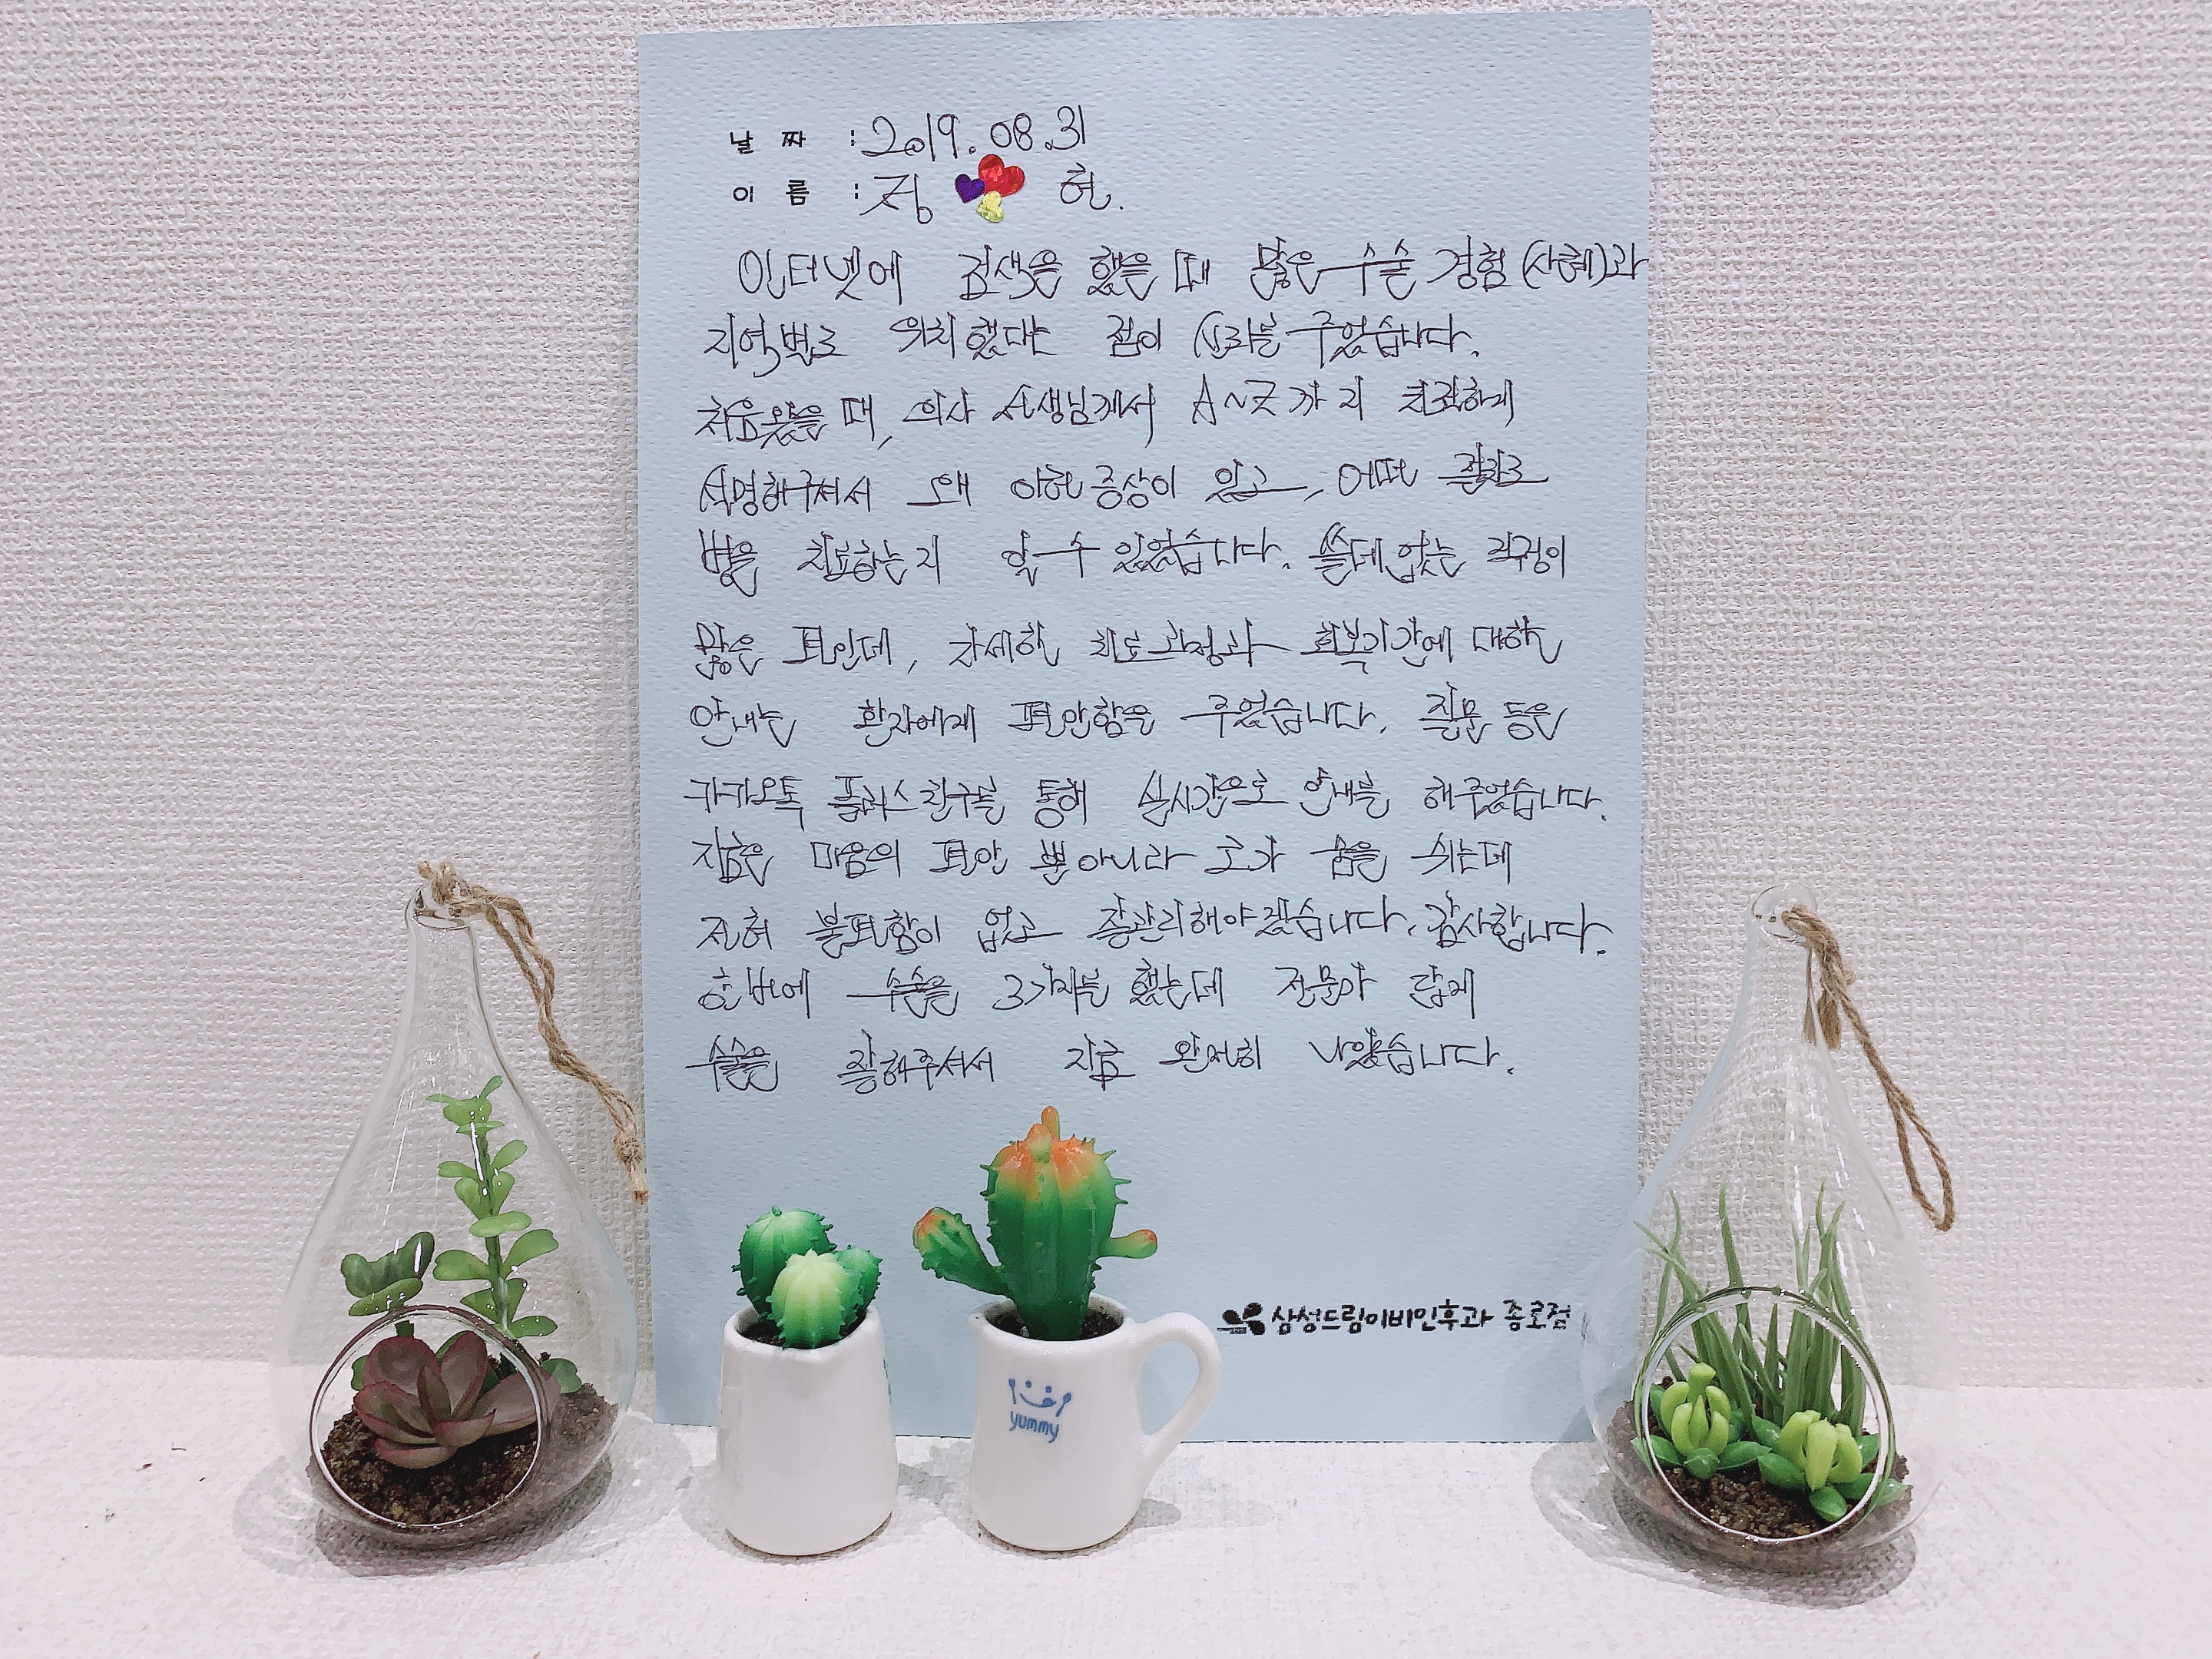 날 짜 : 2019. 08. 31
이 름 : 정 현.
인터넷에 검색을 했을 때 많은 수술 경험(사례)과
지역별로 위치했다는 점이 신뢰를 주었습니다.
처음 왔을 때, 의사 선생님께서 A~Z까지 친절하게
설명해주셔서 왜 이런 증상이 있고, 어떤 절차로
병을 치료하는지 알 수 있었습니다. 쓸데없는 걱정이
많은 편인데, 자세한 치료과정과 회복기간에 대한
안내는 환자에게 편안함을 주었습니다. 질문 등은
카카오톡 플러스친구를 통해 실시간으로 안내를 해주었습니다.
지금은 마음의 편안 뿐아니라 코가 숨을 쉬는데
전혀 불편함이 없고 잘관리해야겠습니다. 감사합니다.
한번에 수술을 3가지를 했는데 전문가 답게
수술을 잘해주셔서 지금 완전히 나았습니다.
yummy
삼성드림이비인후과 종로점